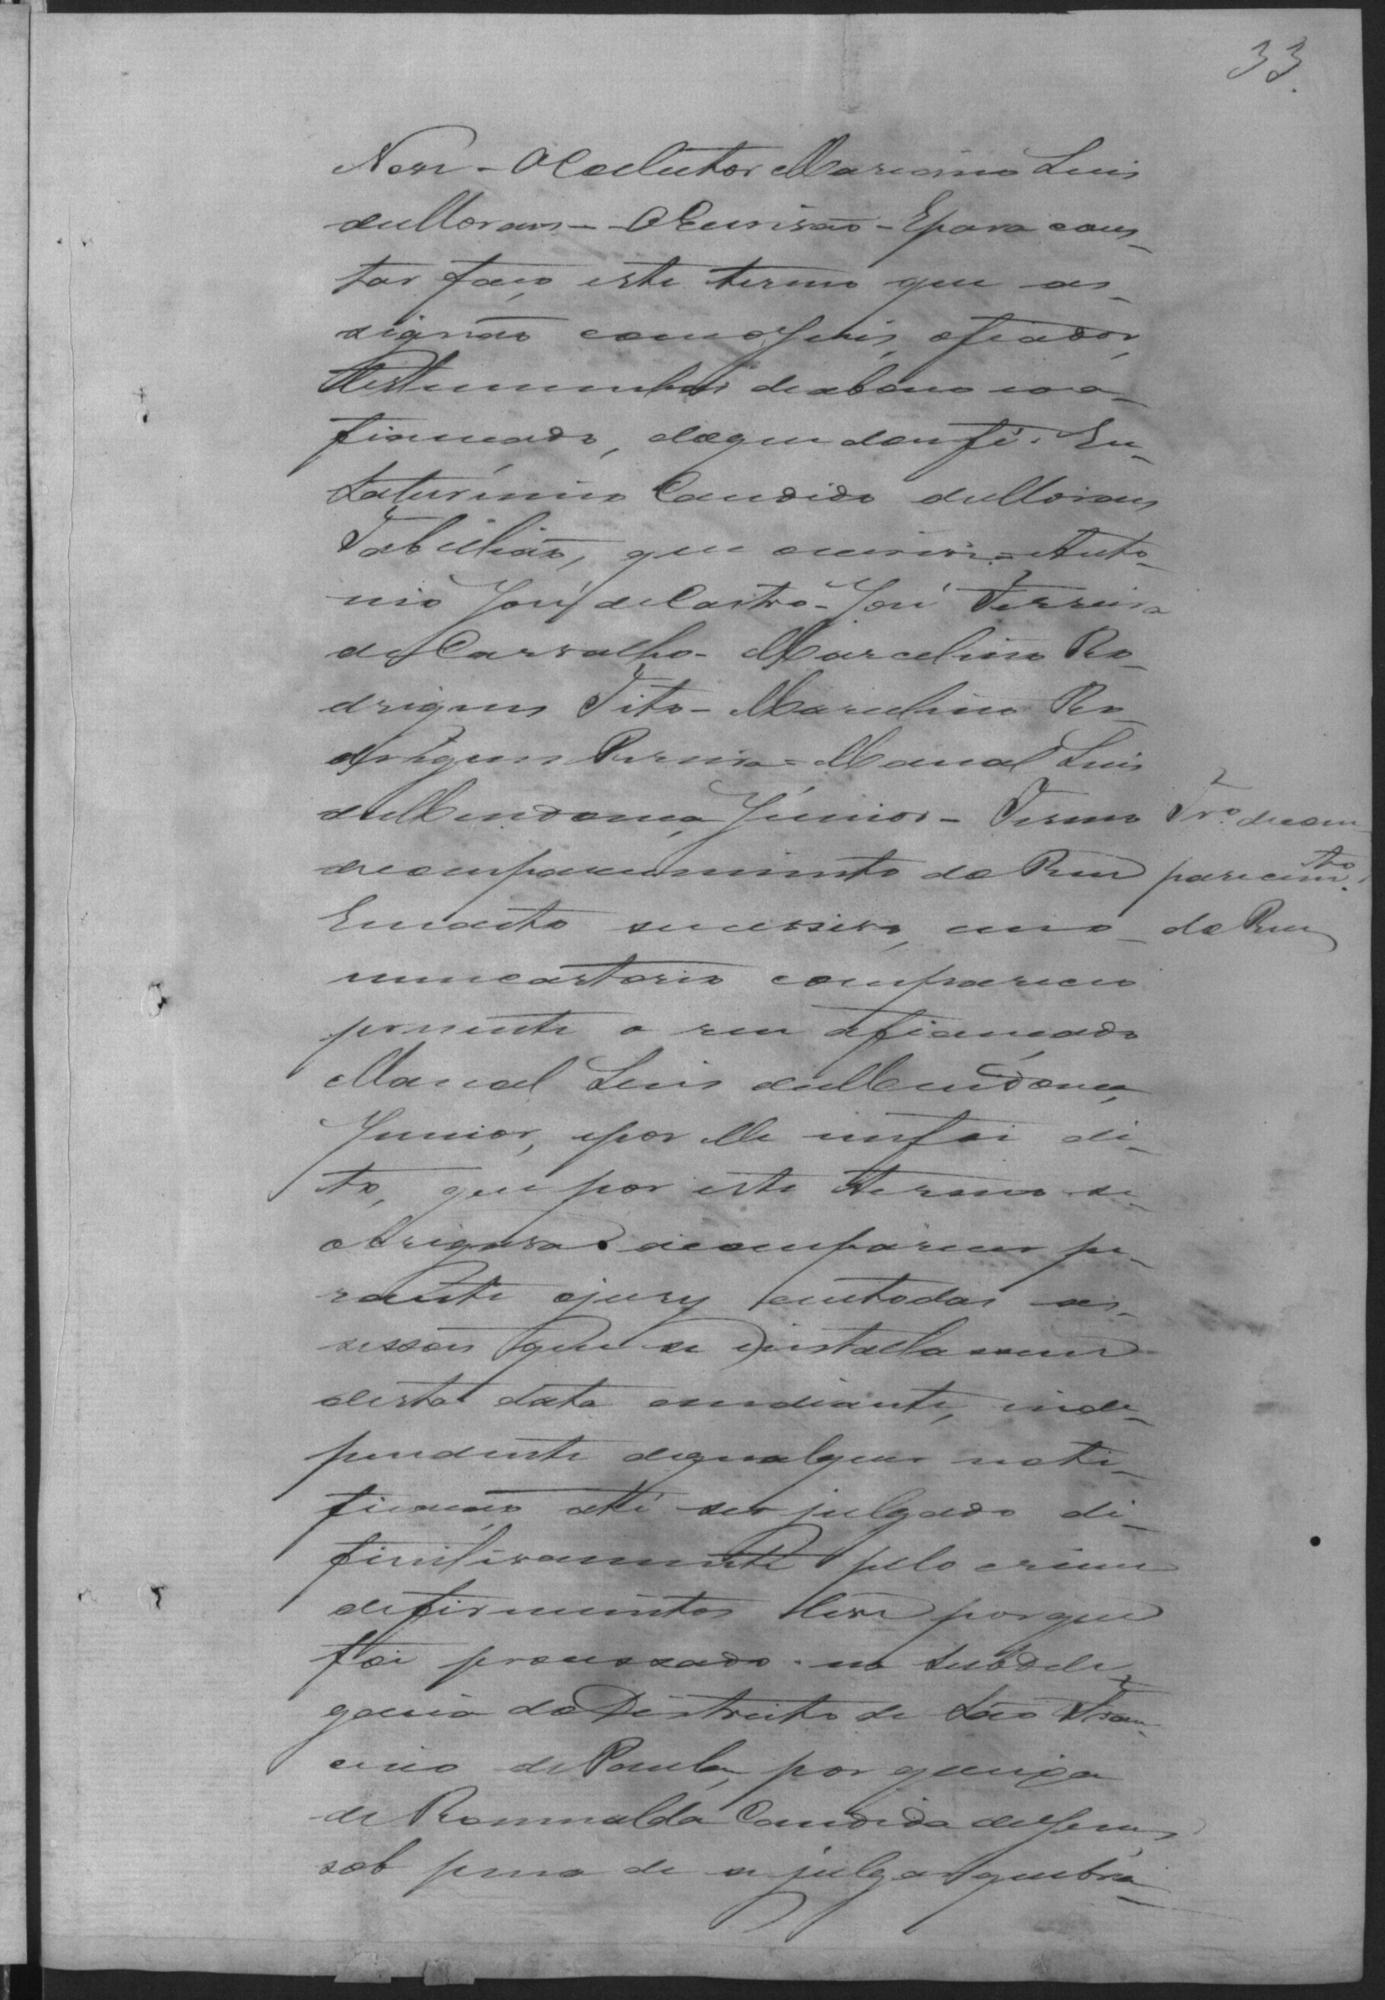 33.
Neri - O Colletor Marciano Luis
de Moraes - O Escrivão - E para cons-
tar faço este termo que as-
signão com o Juis, o fiador,
testemunhas de abono e o a-
fiançado, do que dou fé. Eu
Saturnino Candido de Moraes
Tabellião, que escrevi = Anto-
nio José de Castro - José Ferreira
de Carvalho - Marcelino Ro-
drigues Tito - Marcelino Ro-
drigues Pereira = Manoel Luis
de Mendonça Junior - Termo
de comparecimento do Reu
Tro. de com-
parecimto.
do Reu
Em acto sucessivo, em o
meu cartorio compareceo
prezente o reu afiançado
Manoel Luis de Mendonça
Junior, e por elle me foi di-
to, que por este termo se
obrigava a comparecer pe-
rante o jury em todas as
sessões que se installassem
desta data em diante, inde-
pendente de qualquer noti-
ficação até ser julgado di-
finitivamente pelo crime
de firimentos leve porque
foi processado na subdele-
gacia do Districto de São Fran-
cisco de Paula, por queixa
de Romualda Candida de Jesus,
sob pena de se julgar quebra-